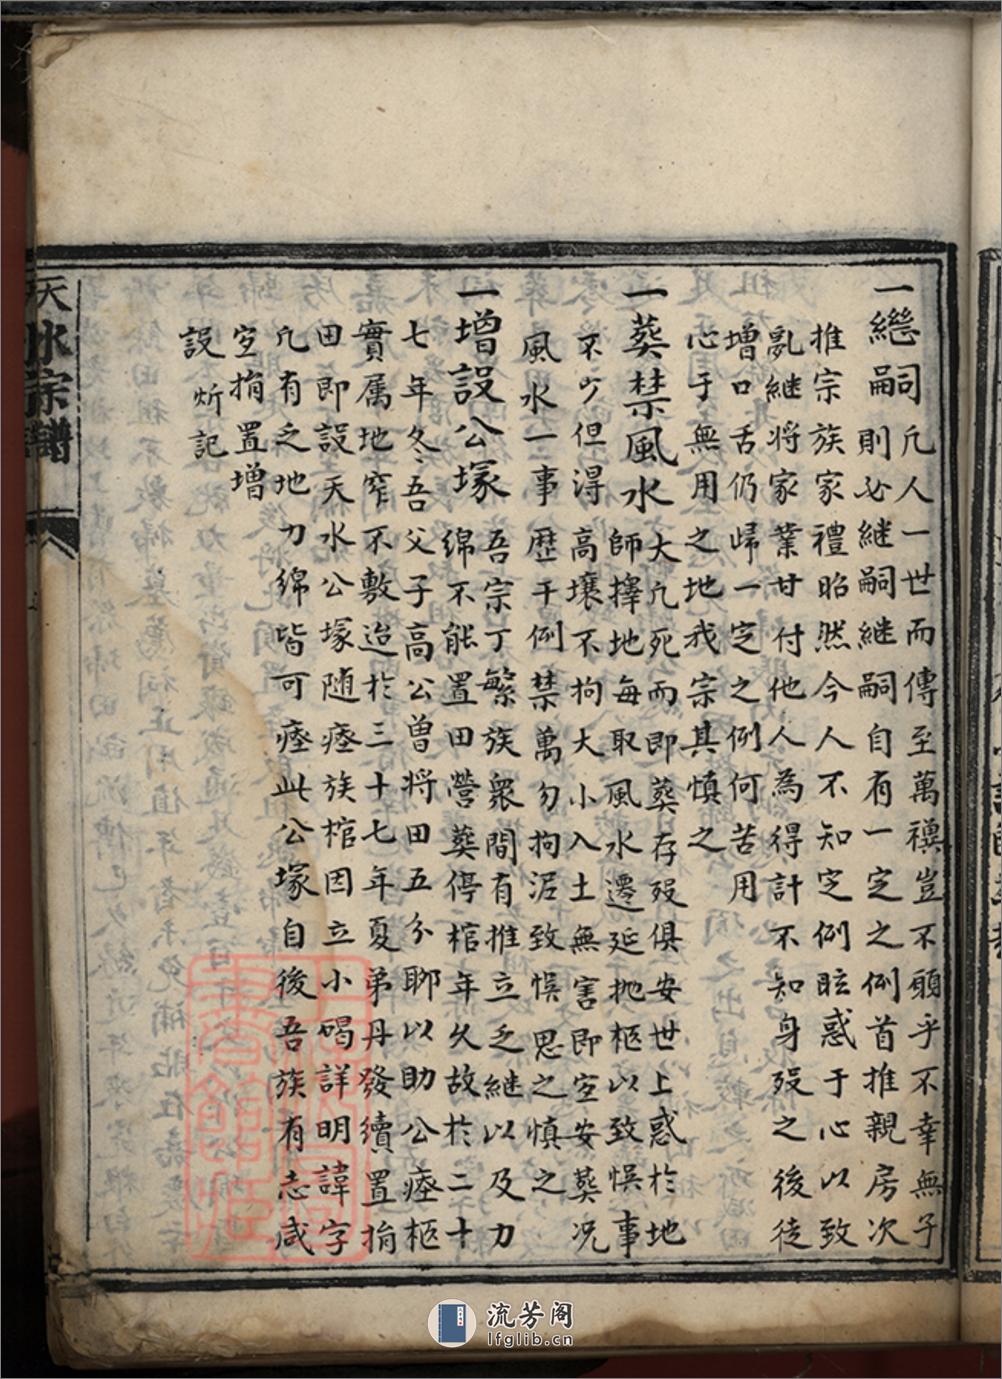 一繼嗣 凢人一世而傳至萬禩豈不願乎不幸無子
則必継嗣継嗣自有一定之例首推親房次
推宗族家禮昭然今人不知定例眩惑于心以致
亂継将家業甘付他人為得計不知身歿之後徒
增口舌仍歸一定之例何苦用
心于無用之地我宗其慎之
一葬禁風水 大凢死而即葬存歿俱安世上惑於地
師擇地每取風水遷延抛柩以致悞事
不少但得高壤不拘大小入土無害即空安葬况
風水一事歷干例禁萬勿拘泥致悞思之慎之
一增設公塚 吾宗丁繁族衆間有推立之継以及力
綿不能置田營葬停棺年久故於二十
七年冬吾父子高公曾将田五分聊以助公瘞柩
實属地窄不敷迨於三十七年夏弟丹發續置捐
田即設天水公塚随瘞族棺因立小碣詳明諱字
凢有之地力綿皆可瘞此公塚自後吾族有志咸
空捐置增
設 炘記
天水宗譜
流芳阁
lfglib.cn